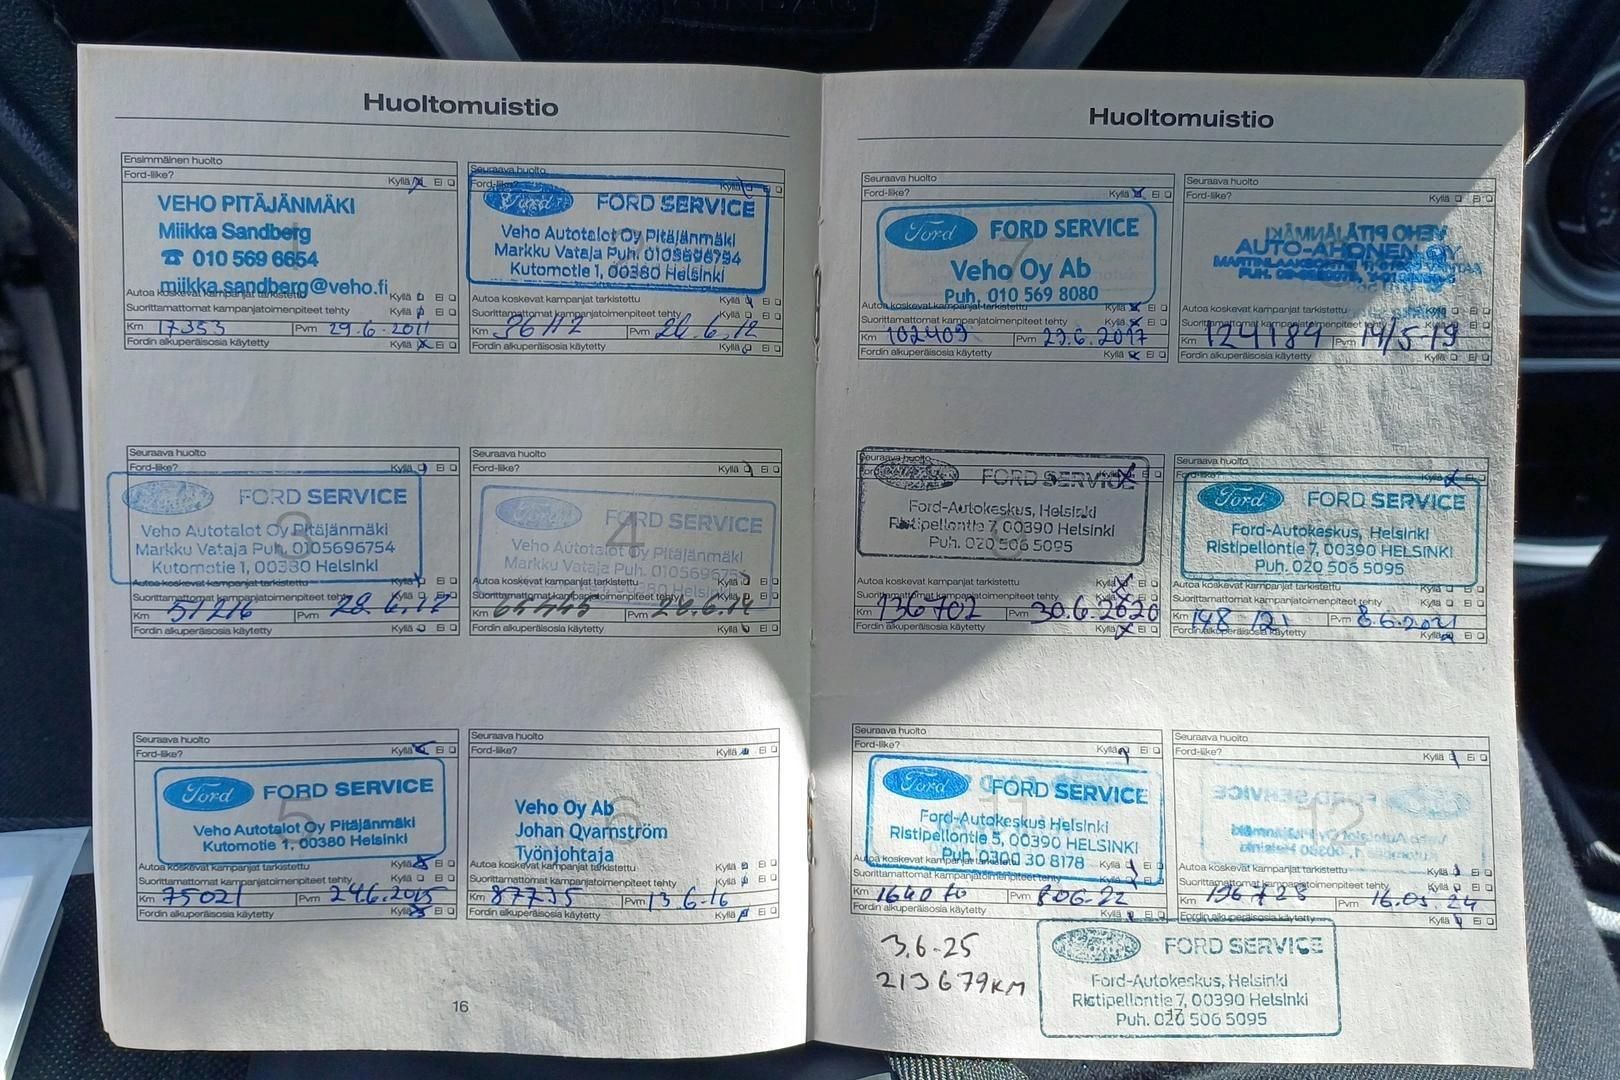 Huoltomuistio
Ensimmäinen huolto
Ford-liike? Kyllä Ei
VEHO PITÄJÄNMÄKI
Miikka Sandberg
☎ 010 569 6654
miikka.sandberg@veho.fi
Autoa koskevat kampanjat tarkistettu Kyllä Ei
Suorittamattomat kampanjatoimenpiteet tehty Kyllä Ei
Km 17353 Pvm 29.6.2011
Fordin alkuperäisosia käytetty Kyllä Ei
Seuraava huolto
Ford-liike? Kyllä Ei
Ford FORD SERVICE
Veho Autotalot Oy Pitäjänmäki
Markku Vataja Puh. 0105696754
Kutomotie 1, 00380 Helsinki
Autoa koskevat kampanjat tarkistettu Kyllä Ei
Suorittamattomat kampanjatoimenpiteet tehty Kyllä Ei
Km Pvm
Fordin alkuperäisosia käytetty Kyllä Ei
Seuraava huolto
Ford-liike? Kyllä Ei
FORD SERVICE
3
Veho Autotalot Oy Pitäjänmäki
Markku Vataja Puh. 0105696754
Kutomotie 1, 00380 Helsinki
Autoa koskevat kampanjat tarkistettu Kyllä Ei
Suorittamattomat kampanjatoimenpiteet tehty Kyllä Ei
Km 51216 Pvm
Fordin alkuperäisosia käytetty Kyllä Ei
Seuraava huolto
Ford-liike? Kyllä Ei
FORD SERVICE
4
Veho Autotalot Oy Pitäjänmäki
Markku Vataja Puh. 0105696754
Helsinki
Autoa koskevat kampanjat tarkistettu Kyllä Ei
Suorittamattomat kampanjatoimenpiteet tehty Kyllä Ei
Km 65445 Pvm
Fordin alkuperäisosia käytetty Kyllä Ei
Seuraava huolto
Ford-liike? Kyllä Ei
Ford FORD SERVICE
5
Veho Autotalot Oy Pitäjänmäki
Kutomotie 1, 00380 Helsinki
Autoa koskevat kampanjat tarkistettu Kyllä Ei
Suorittamattomat kampanjatoimenpiteet tehty Kyllä Ei
Km 75021 Pvm 24.6.2015
Fordin alkuperäisosia käytetty Kyllä Ei
Seuraava huolto
Ford-liike? Kyllä Ei
6
Veho Oy Ab
Johan Qvarnström
Työnjohtaja
Autoa koskevat kampanjat tarkistettu Kyllä Ei
Suorittamattomat kampanjatoimenpiteet tehty Kyllä Ei
Km 87735 Pvm 13.6-16
Fordin alkuperäisosia käytetty Kyllä Ei
16
Huoltomuistio
Seuraava huolto
Ford-liike? Kyllä Ei
Ford FORD SERVICE
7
Veho Oy Ab
Puh. 010 569 8080
Autoa koskevat kampanjat tarkistettu Kyllä Ei
Suorittamattomat kampanjatoimenpiteet tehty Kyllä Ei
Km 102409 Pvm 23.6.2017
Fordin alkuperäisosia käytetty Kyllä Ei
Seuraava huolto
Ford-liike? Kyllä Ei
AUTO-AHONEN OY
Autoa koskevat kampanjat tarkistettu Kyllä Ei
Suorittamattomat kampanjatoimenpiteet tehty Kyllä Ei
Km 124184 Pvm 14/5-19
Fordin alkuperäisosia käytetty Kyllä Ei
Seuraava huolto
FORD SERVICE
Ford-Autokeskus, Helsinki
Ristipellontie 7, 00390 Helsinki
Puh. 020 506 5095
Autoa koskevat kampanjat tarkistettu Kyllä Ei
Suorittamattomat kampanjatoimenpiteet tehty Kyllä Ei
Km 136702 Pvm 30.6.2020
Fordin alkuperäisosia käytetty Kyllä Ei
Seuraava huolto
Ford-liike? Kyllä Ei
Ford FORD SERVICE
Ford-Autokeskus, Helsinki
Ristipellontie 7, 00390 HELSINKI
Puh. 020 506 5095
Autoa koskevat kampanjat tarkistettu Kyllä Ei
Suorittamattomat kampanjatoimenpiteet tehty Kyllä Ei
Km 148 121 Pvm 8.6.2021
Fordin alkuperäisosia käytetty Kyllä Ei
Seuraava huolto
Ford-liike? Kyllä Ei
Ford FORD SERVICE
11
Ford-Autokeskus Helsinki
Ristipellontie 5, 00390 HELSINKI
Puh. 0300 30 8178
Autoa koskevat kampanjat tarkistettu Kyllä Ei
Suorittamattomat kampanjatoimenpiteet tehty Kyllä Ei
Km 164070 Pvm 8.06.22
Fordin alkuperäisosia käytetty Kyllä Ei
Seuraava huolto
Ford-liike? Kyllä Ei
12
Autoa koskevat kampanjat tarkistettu Kyllä Ei
Suorittamattomat kampanjatoimenpiteet tehty Kyllä Ei
Km Pvm 16.05.24
Fordin alkuperäisosia käytetty Kyllä Ei
3.6-25
213679KM
FORD SERVICE
Ford-Autokeskus, Helsinki
Ristipellontie 7, 00390 Helsinki
Puh. 020 506 5095
17